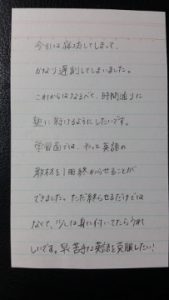 今日は寝坊してしまって、
かなり遅刻してしまいました。
これからはなるべく、時間通りに
塾に行けるようにしたいです。
学習面では、やっと英語の
教材を1冊終わらせることが
できました。ただ終わらせるだけでは
なくて、少しは身に付いてたらうれ
しいです。早く苦手な英語を克服したい!